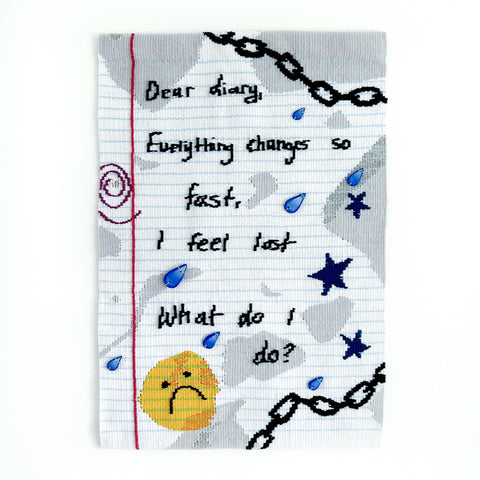 Dear diary,
Everything changes so
fast,
I feel lost
What do I
do?